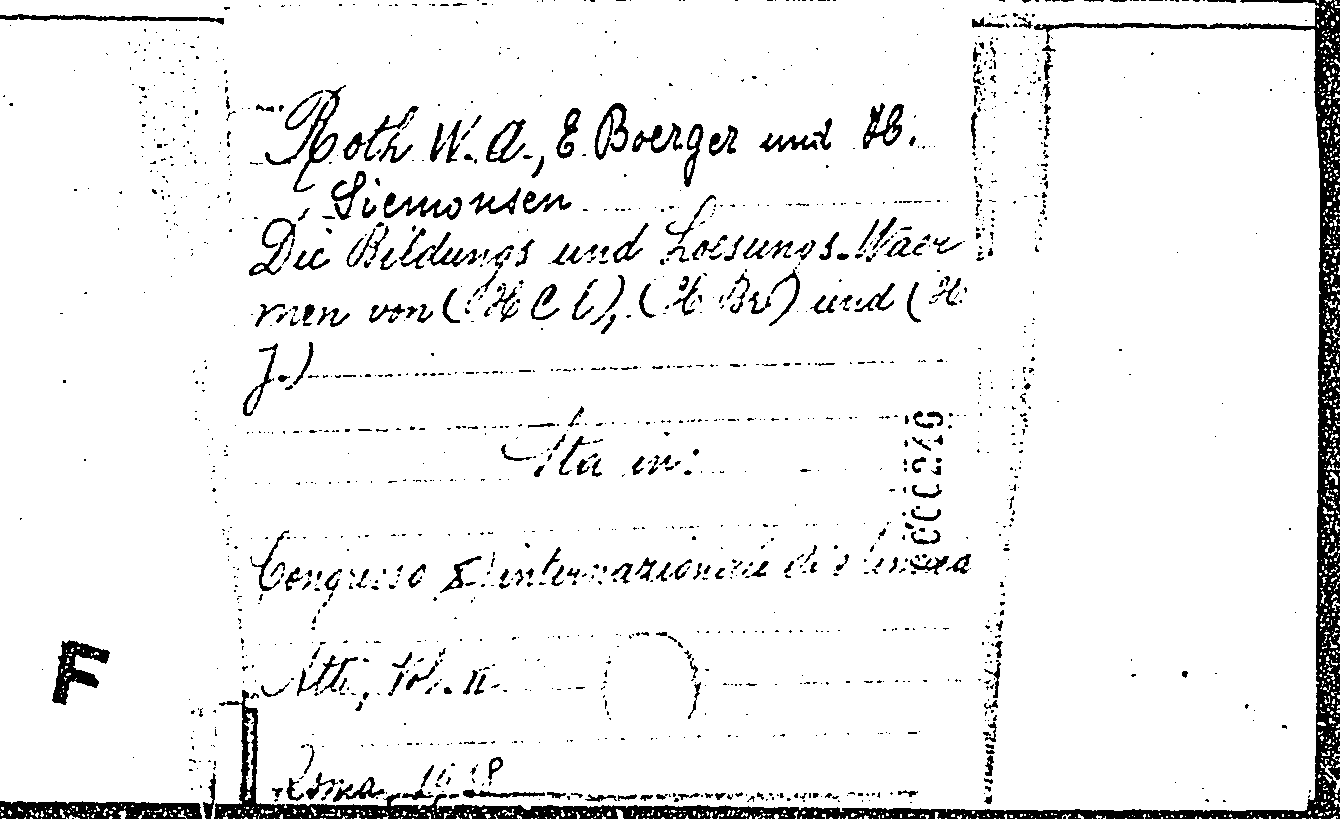 Roth W. A., E. Boerger und H.
Siemonsen
Die Bildungs und Loesungs-Waer
men von (HCl), (HBr) und (H
J.)
Sta in:
Congresso X internazionale di
Atti, Vol. II
Roma, 1938
000249
F